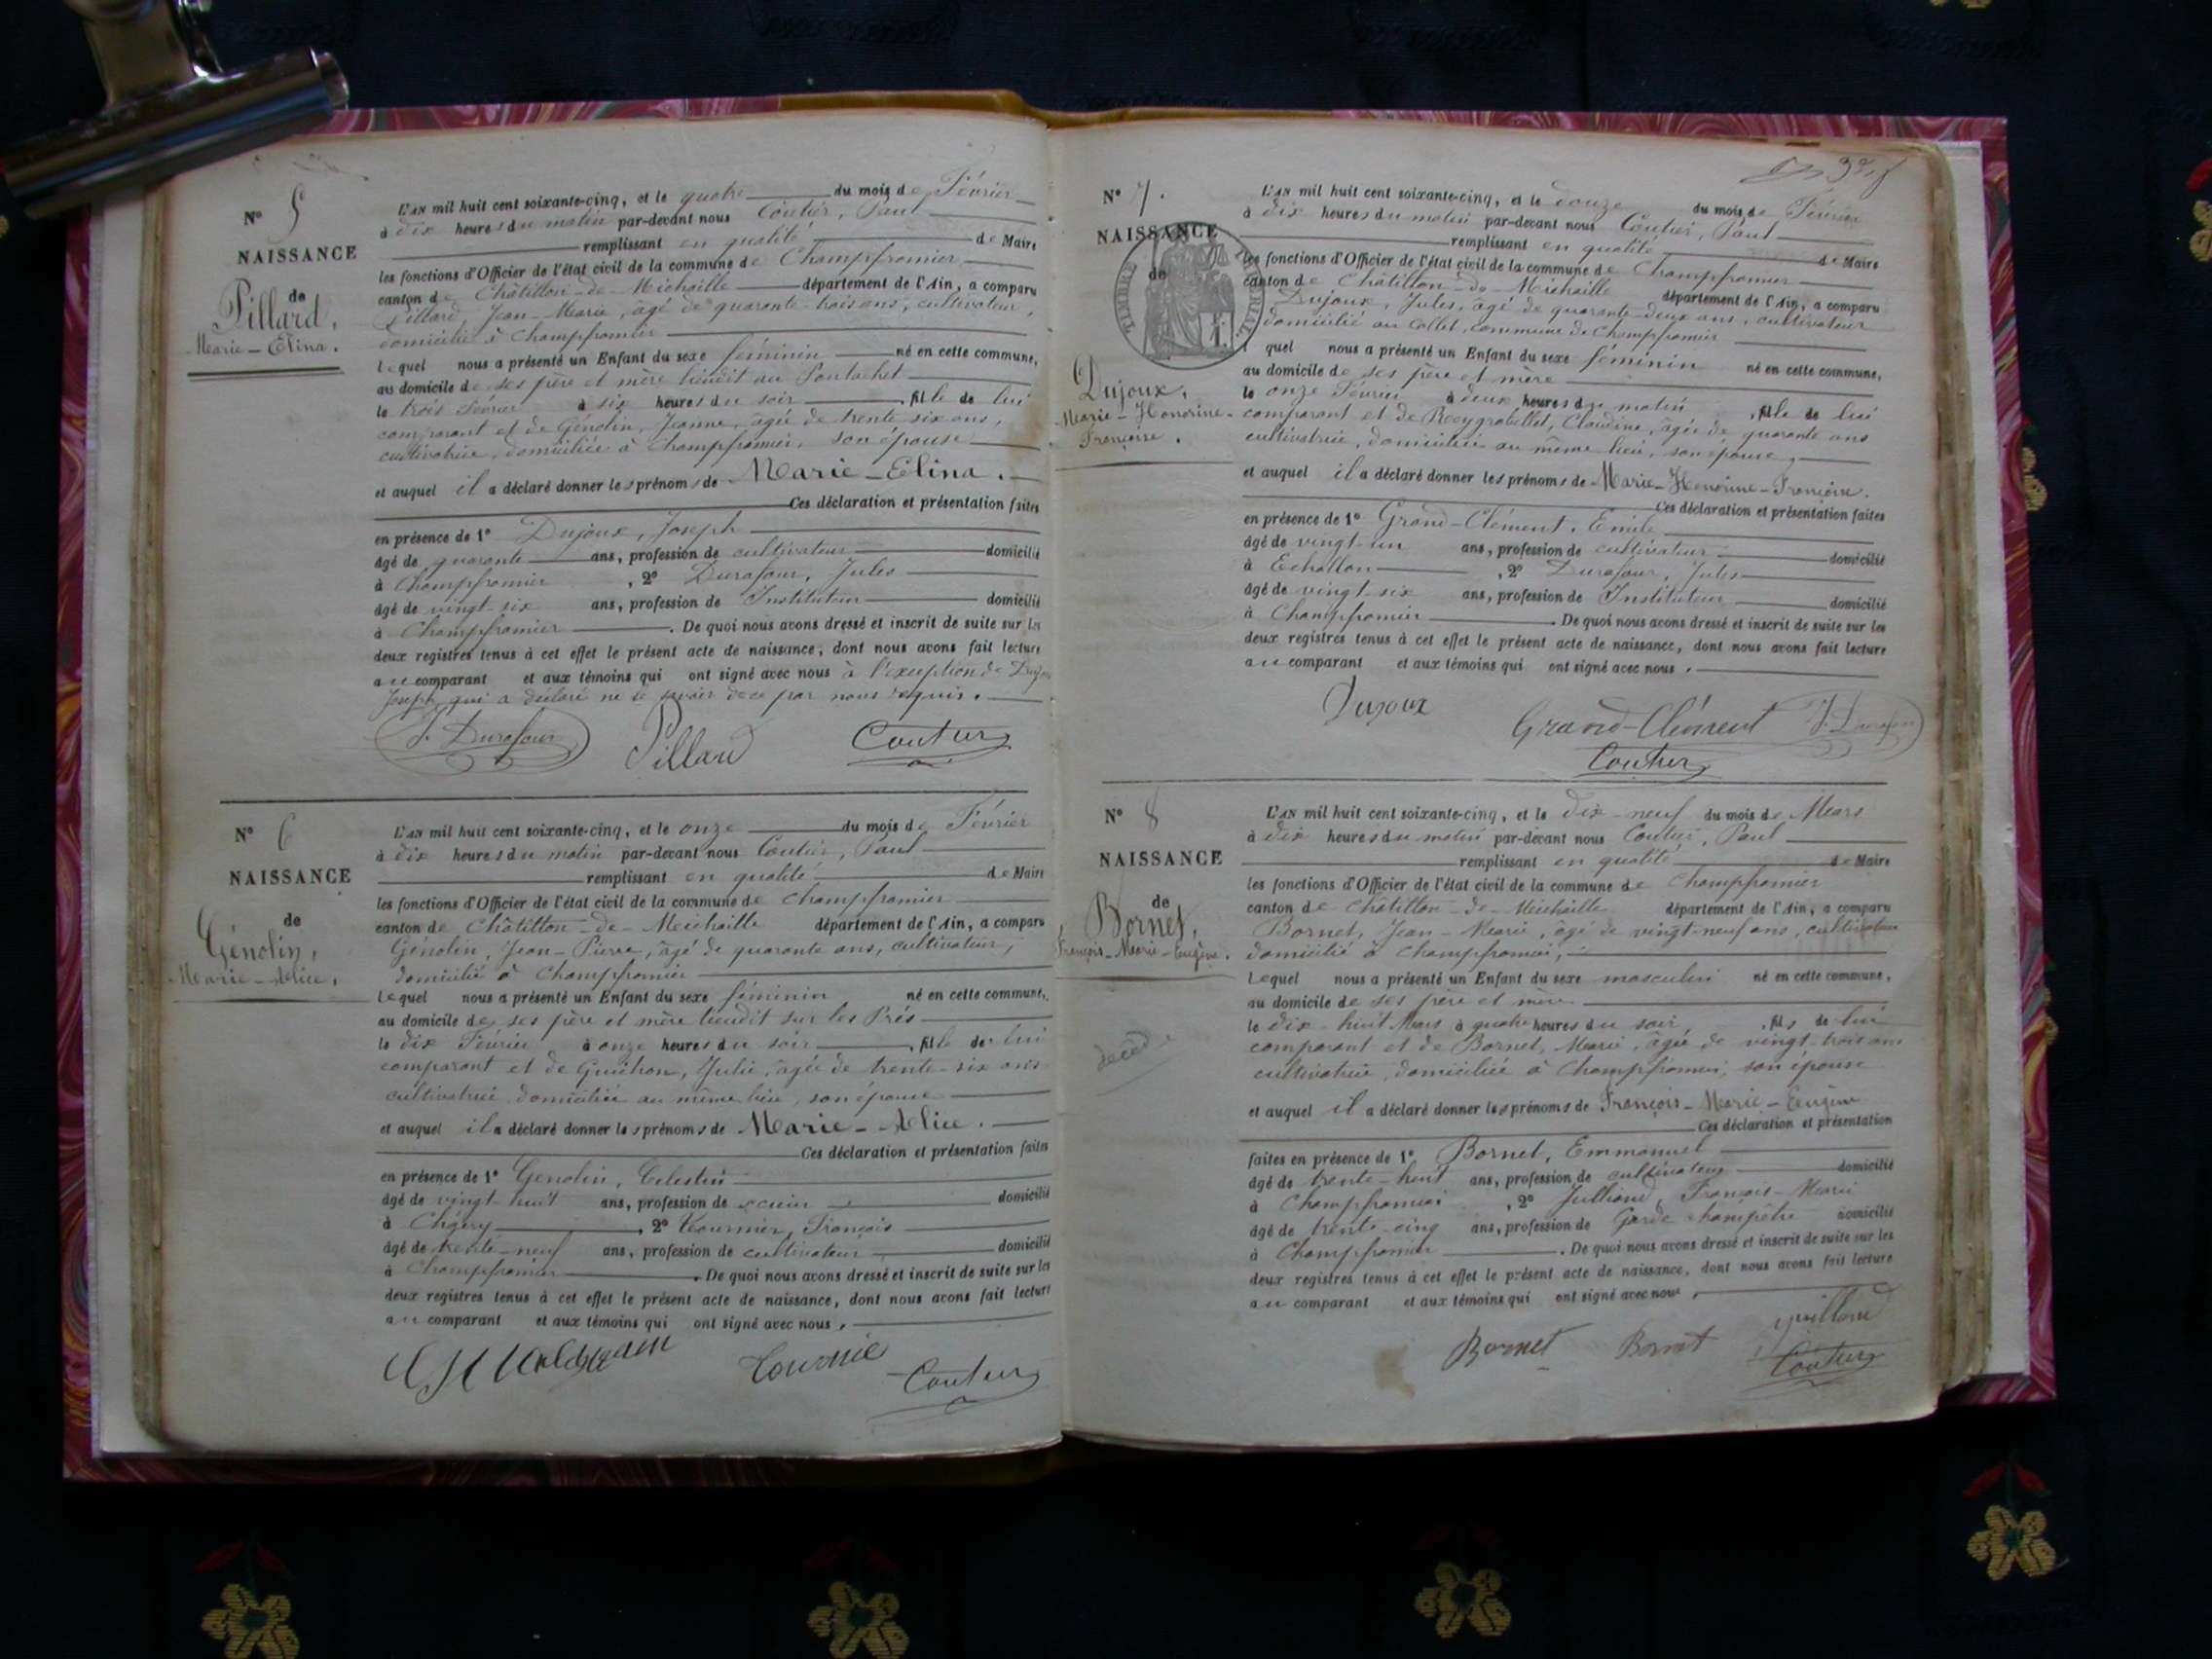 N° 5
NAISSANCE
de
Pillard,
Marie-Elina.
L'AN mil huit cent soixante-cinq, et le quatre du mois de Février
à dix heures du matin par-devant nous Coutier, Paul
remplissant en qualité de Maire
les fonctions d'Officier de l'état civil de la commune de Champfromier
canton de Châtillon-de-Michaille département de l'Ain, a comparu
Pillard, Jean-Marie, âgé de quarante-trois ans, cultivateur,
domicilié à Champfromier
lequel nous a présenté un Enfant du sexe féminin né en cette commune,
au domicile de ses père et mère lieudit au Pontachet
le trois Février à six heures du soir, fille de lui
comparant et de Génolin, Jeanne, âgée de trente six ans,
cultivatrice, domiciliée à Champfromier, son épouse
et auquel il a déclaré donner les prénoms de Marie-Elina.
Ces déclaration et présentation faites
en présence de 1° Dujoux, Joseph
âgé de quarante ans, profession de cultivateur domicilié
à Champfromier, 2° Durafour, Jules
âgé de vingt-six ans, profession de Instituteur domicilié
à Champfromier. De quoi nous avons dressé et inscrit de suite sur les
deux registres tenus à cet effet le présent acte de naissance, dont nous avons fait lecture
au comparant et aux témoins qui ont signé avec nous à l'exception de
Joseph qui a déclaré ne le savoir de ce par nous requis.
J. Durafour Pillard Coutier
N° 6
NAISSANCE
de
Génolin,
Marie-Alice,
L'AN mil huit cent soixante-cinq, et le onze du mois de Février
à dix heures du matin par-devant nous Coutier, Paul
remplissant en qualité de Maire
les fonctions d'Officier de l'état civil de la commune de Champfromier
canton de Châtillon-de-Michaille département de l'Ain, a comparu
Génolin, Jean-Pierre, âgé de quarante ans, cultivateur,
domicilié à Champfromier
lequel nous a présenté un Enfant du sexe féminin né en cette commune,
au domicile de ses père et mère lieudit sur les Prés
le dix Février à onze heures du soir, fille de lui
comparant et de Guichon, Julie, âgée de trente-six ans
cultivatrice domiciliée au même lieu, son épouse
et auquel il a déclaré donner les prénoms de Marie-Alice.
Ces déclaration et présentation faites
en présence de 1° Genolin, Celestin
âgé de vingt-huit ans, profession de scieur domicilié
à Chézery, 2° Tournier, François
âgé de trente-neuf ans, profession de cultivateur domicilié
à Champfromier. De quoi nous avons dressé et inscrit de suite sur les
deux registres tenus à cet effet le présent acte de naissance, dont nous avons fait lecture
au comparant et aux témoins qui ont signé avec nous,
Coutier
N° 7.
NAISSANCE
de
TIMBRE IMPÉRIAL
Dujoux,
Marie-Honorine-
Françoise.
L'AN mil huit cent soixante-cinq, et le douze du mois de Février
à dix heures du matin par-devant nous Coutier, Paul
remplissant en qualité de Maire
les fonctions d'Officier de l'état civil de la commune de Champfromier
canton de Châtillon-de-Michaille département de l'Ain, a comparu
Dujoux, Jules, âgé de quarante-deux ans, cultivateur
domicilié au Collet, commune de Champfromier
lequel nous a présenté un Enfant du sexe féminin né en cette commune,
au domicile de ses père et mère
le onze Février à deux heures du matin, fille de lui
comparant et de Reygrobellet, Claudine, âgée de quarante ans
cultivatrice, domiciliée au même lieu, son épouse,
et auquel il a déclaré donner les prénoms de Marie-Honorine-Françoise.
Ces déclaration et présentation faites
en présence de 1° Grand-Clément, Emile
âgé de vingt-un ans, profession de cultivateur domicilié
à Echallon, 2° Durafour, Jules
âgé de vingt-six ans, profession de Instituteur domicilié
à Champfromier. De quoi nous avons dressé et inscrit de suite sur les
deux registres tenus à cet effet le présent acte de naissance, dont nous avons fait lecture
au comparant et aux témoins qui ont signé avec nous.
Dujoux Grand-Clément J. Durafour
Coutier
N° 8
NAISSANCE
de
Bornet,
François-Marie-Eugène.
décédé
L'AN mil huit cent soixante-cinq, et le dix-neuf du mois de Mars
à dix heures du matin par-devant nous Coutier, Paul
remplissant en qualité de Maire
les fonctions d'Officier de l'état civil de la commune de Champfromier
canton de Châtillon-de-Michaille département de l'Ain, a comparu
Bornet, Jean-Marie, âgé de vingt-neuf ans, cultivateur
domicilié à Champfromier,
lequel nous a présenté un Enfant du sexe masculin né en cette commune,
au domicile de ses père et mère
le dix-huit Mars à quatre heures du soir, fils de lui
comparant et de Bornet, Marie, âgée de vingt-trois ans
cultivatrice, domiciliée à Champfromier, son épouse
et auquel il a déclaré donner les prénoms de François-Marie-Eugène
Ces déclaration et présentation
faites en présence de 1° Bornet, Emmanuel
âgé de trente-huit ans, profession de cultivateur domicilié
à Champfromier, 2° Julliand, François-Marie
âgé de trente-cinq ans, profession de Garde champêtre domicilié
à Champfromier. De quoi nous avons dressé et inscrit de suite sur les
deux registres tenus à cet effet le présent acte de naissance, dont nous avons fait lecture
au comparant et aux témoins qui ont signé avec nous,
Bornet Bornet
Coutier